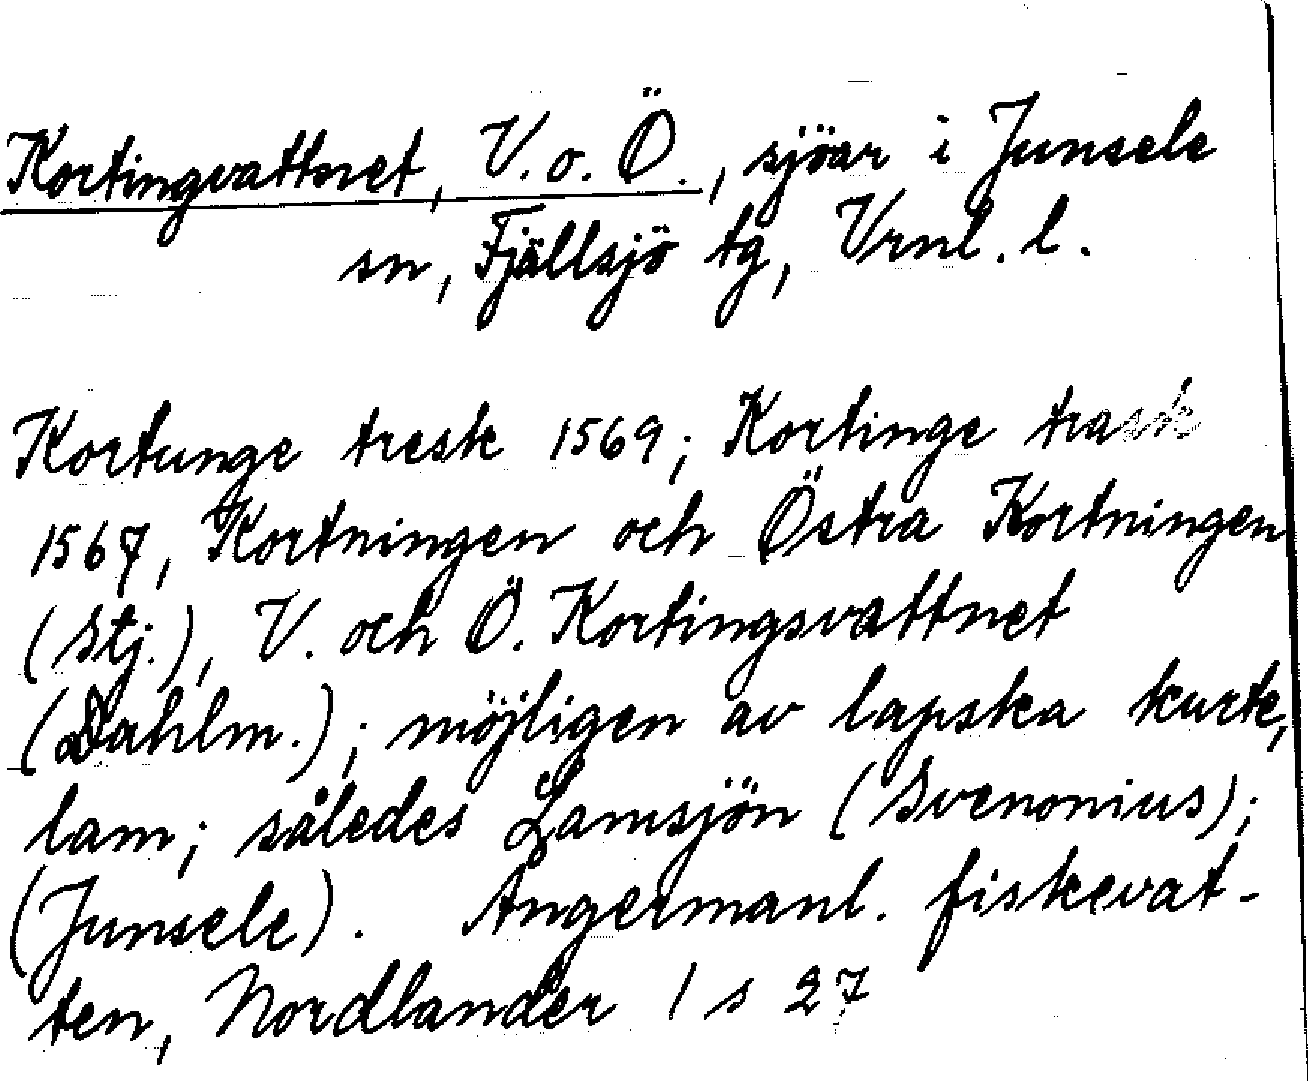 Kortingvattnet, V. o. Ö., sjöar i Junsele
sn, Fjällsjö tg, Vrnl. l.
Kortunge tresk 1569; Kortinge trask
1567, Kortningen och Östra Kortningen
(Stj.), V. och Ö. Kortingsvattnet
(Dahlm.); möjligen av lapska kurte,
lam; således Lamsjön (Svenonius);
(Junsele). Ångermanl. fiskevat-
ten, Nordlander 1 s 27